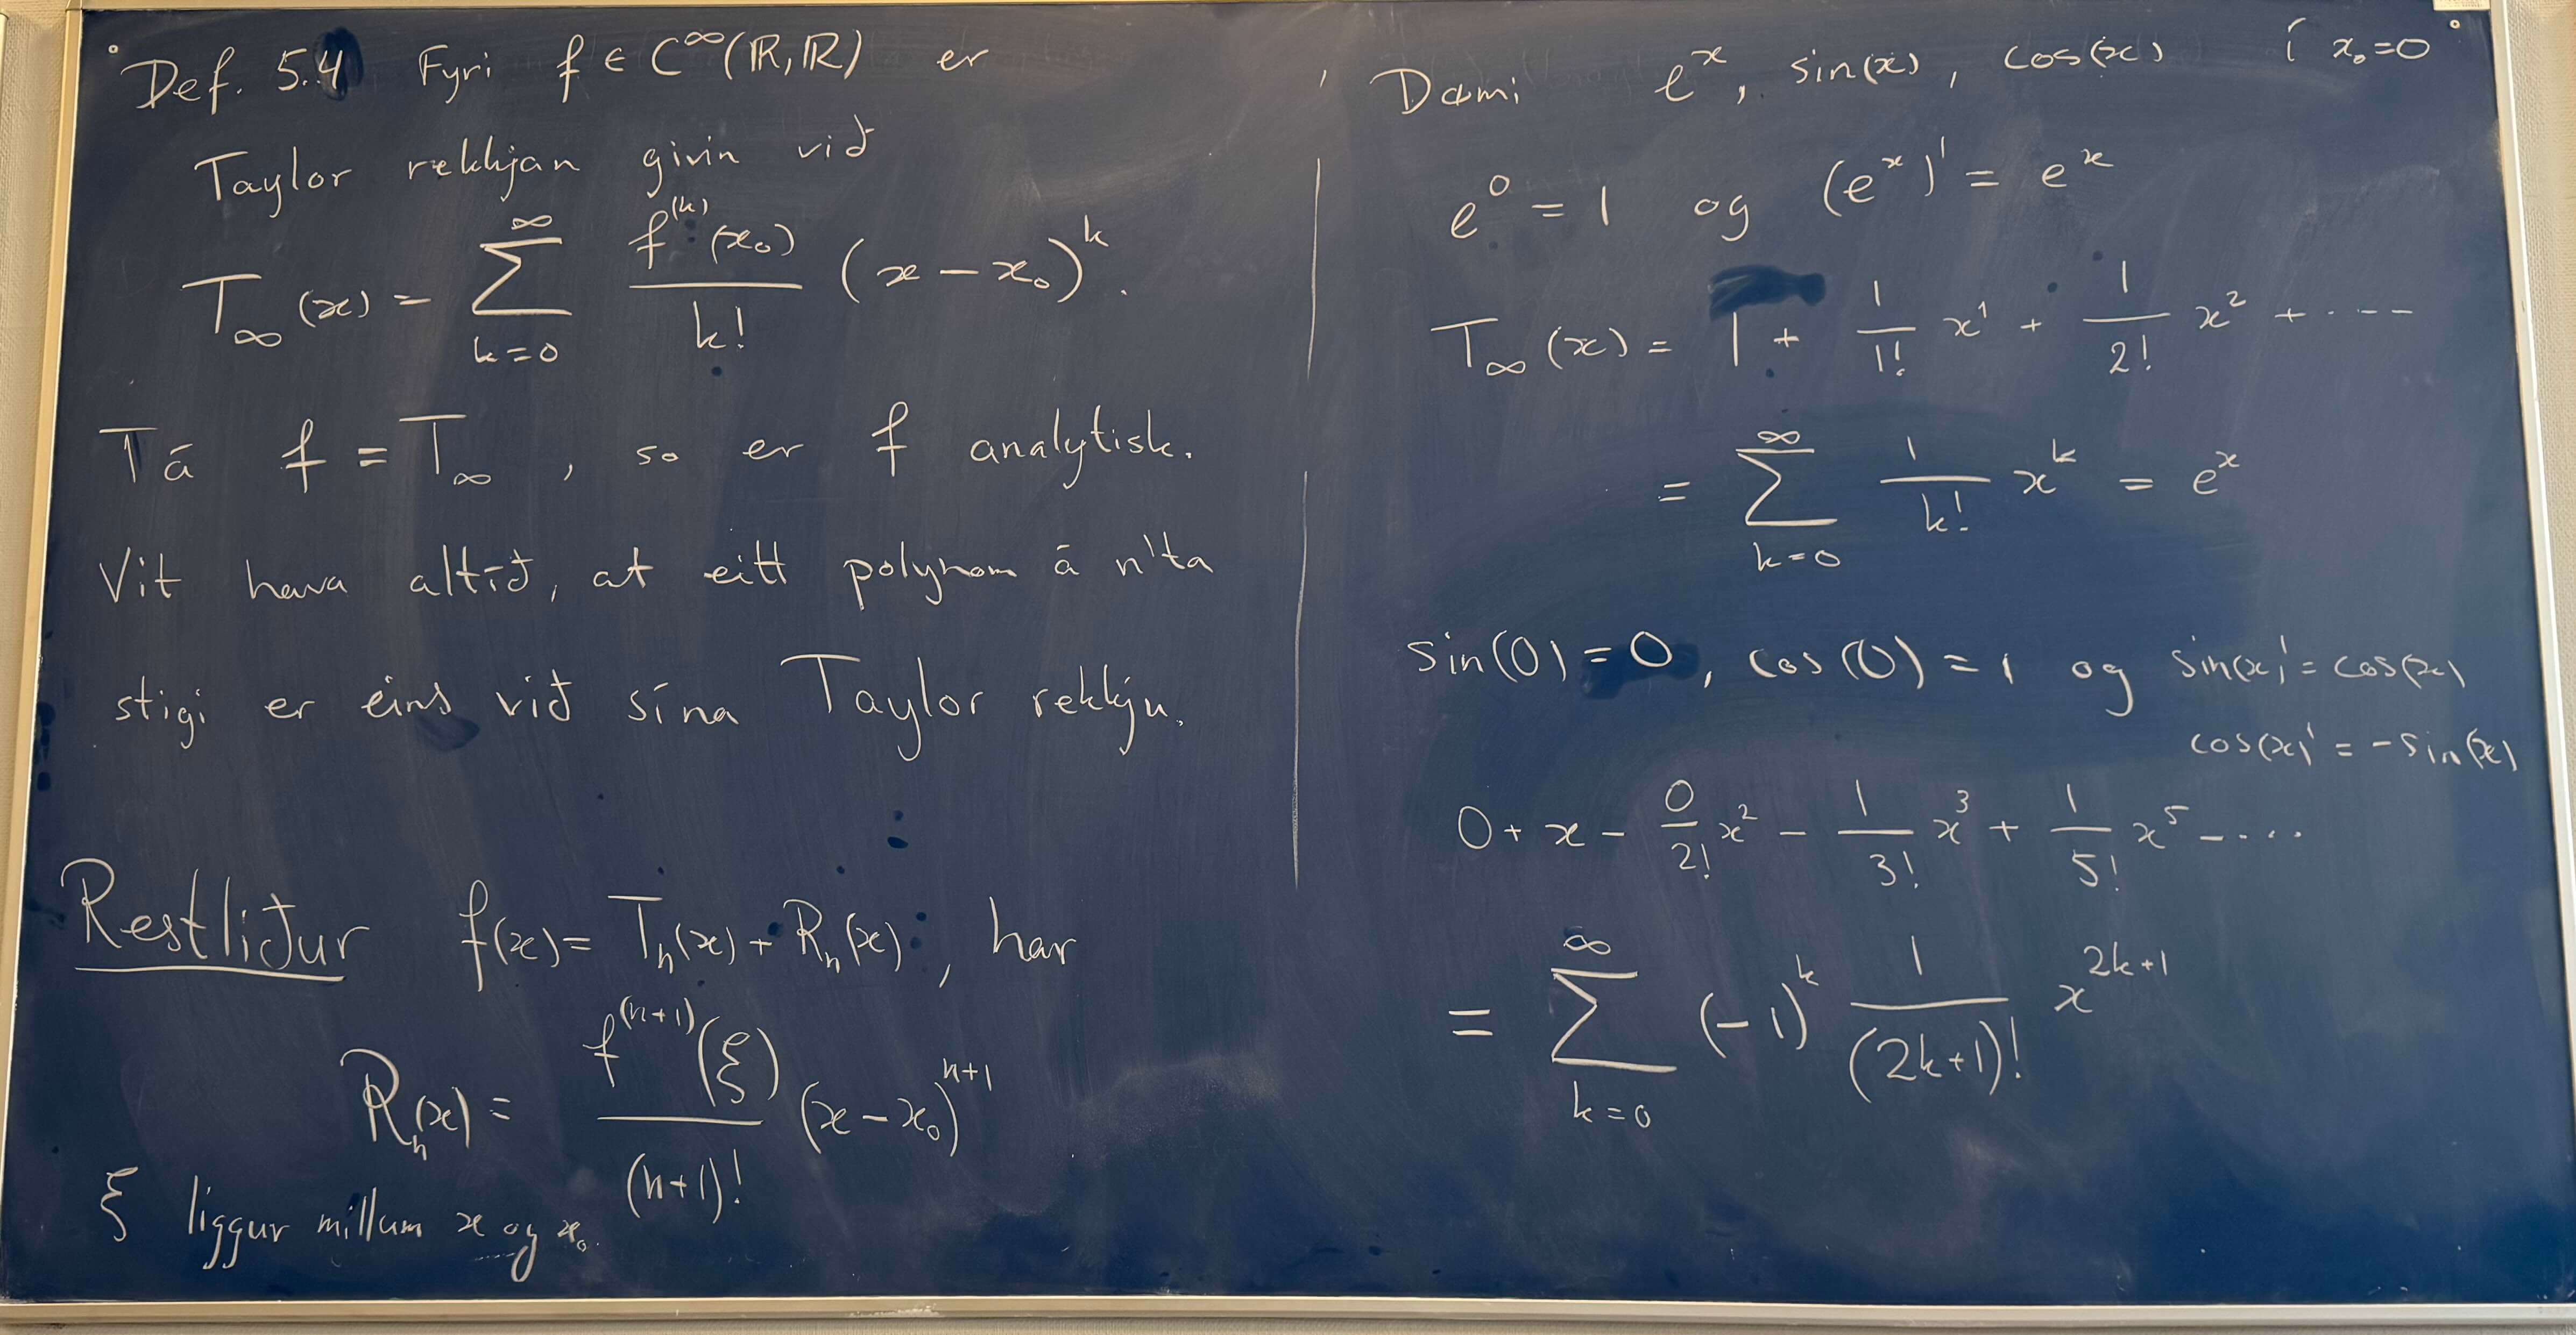 Def. 5.4 Fyri f ∈ C^∞(ℝ,ℝ) er
Taylor rekkjan givin við
T_∞(x) = ∑_{k=0}^{∞} f^{(k)}(x₀)/k! (x − x₀)^k.
Tá f = T_∞, so er f analytisk.
Vit hava altíð, at eitt polynom á n'ta
stigi er eins við sína Taylor rekkju.
Restliður f(x) = T_n(x) + R_n(x), har
R_n(x) = f^{(n+1)}(ξ)/(n+1)! (x − x₀)^{n+1}
ξ liggur millum x og x₀.
Dømi e^x, sin(x), cos(x) í x₀=0
e^0 = 1 og (e^x)' = e^x
T_∞(x) = 1 + 1/1! x^1 + 1/2! x^2 + ....
= ∑_{k=0}^{∞} 1/k! x^k = e^x
sin(0) = 0, cos(0) = 1 og sin(x)' = cos(x)
cos(x)' = −sin(x)
0 + x − 0/2! x^2 − 1/3! x^3 + 1/5! x^5 − ....
= ∑_{k=0}^{∞} (−1)^k 1/(2k+1)! x^{2k+1}